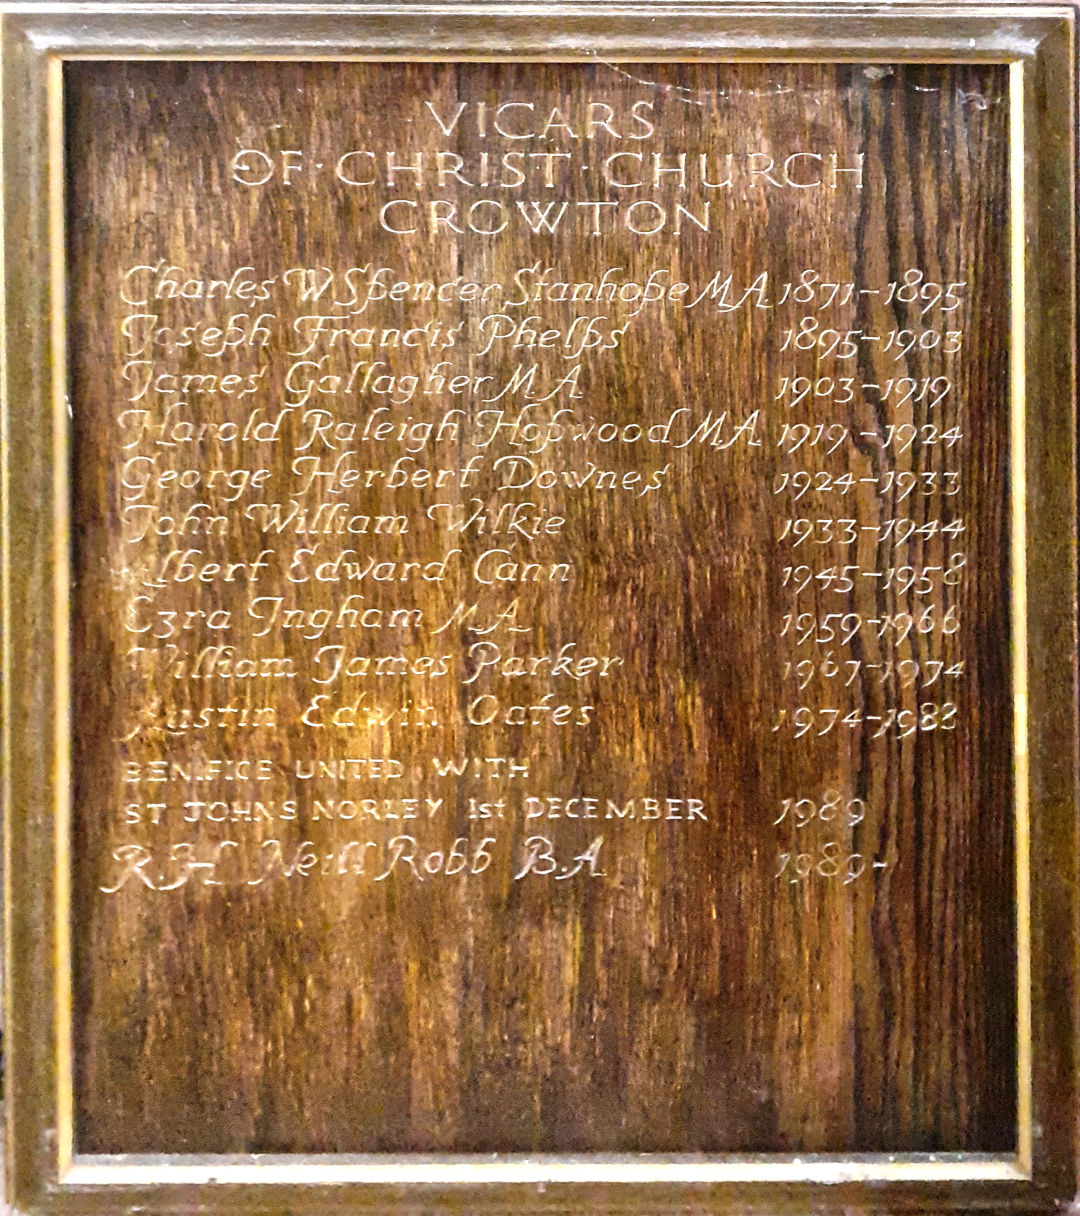 VICARS
OF·CHRIST·CHURCH
CROWTON
Charles W Spencer Stanhope M A 1871-1895
Joseph Francis Phelps 1895-1903
James Gallagher M A 1903-1919
Harold Raleigh Hopwood M A 1919-1924
George Herbert Downes 1924-1933
John William Wilkie 1933-1944
Albert Edward Cann 1945-1958
Ezra Ingham M A 1959-1966
William James Parker 1967-1974
Austin Edwin Oates 1974-1988
BENIFICE UNITED WITH
ST JOHNS NORLEY 1st DECEMBER 1989
R.H. Neill Robb B.A 1989-